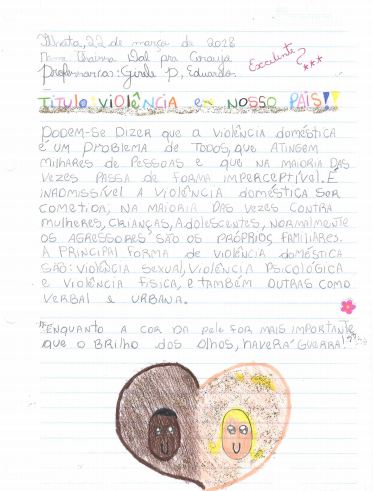 Ilhota, 22 de março de 2018
Nome Thainna Dal pra
Professor(as): Gisele P, Eduardo.
Excelente!
Título: VIOLÊNCIA em NOSSO PAÍS!!
PODEM-SE DIZER QUE A VIOLÊNCIA DOMÉSTICA
É UM PROBLEMA DE TODOS, QUE ATINGEM
MILHARES DE PESSOAS E QUE NA MAIORIA DAS
VEZES PASSA DE FORMA IMPERCEPTÍVEL. É
INADMISSÍVEL A VIOLÊNCIA DOMÉSTICA SER
COMETIDA, NA MAIORIA DAS VEZES CONTRA
MULHERES, CRIANÇAS, ADOLESCENTES, NORMALMENTE
OS AGRESSORES SÃO OS PRÓPRIOS FAMILIARES.
A PRINCIPAL FORMA DE VIOLÊNCIA DOMÉSTICA
SÃO: VIOLÊNCIA SEXUAL, VIOLÊNCIA PSICOLÓGICA
E VIOLÊNCIA FÍSICA, E TAMBÉM OUTRAS COMO
VERBAL E URBANA.
"ENQUANTO A COR DA pele FOR MAIS IMPORTANTE
QUE O BRILHO DOS OLHOS, HAVERÁ GUERRA!"